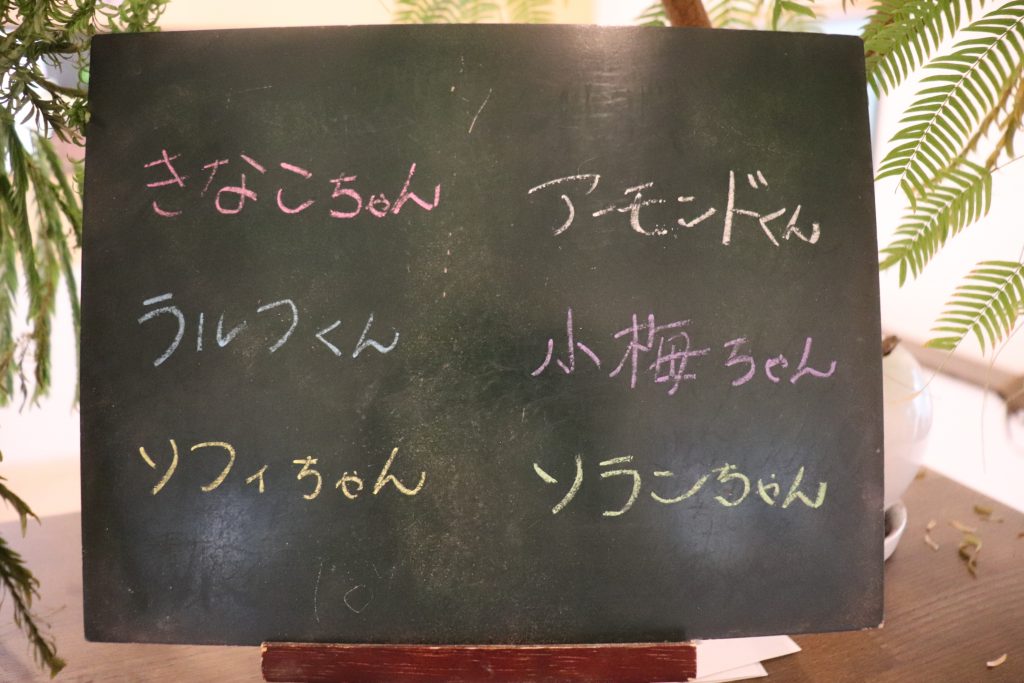 きなこちゃん
アーモンドくん
ラルフくん
小梅ちゃん
ソフィちゃん
ソランちゃん